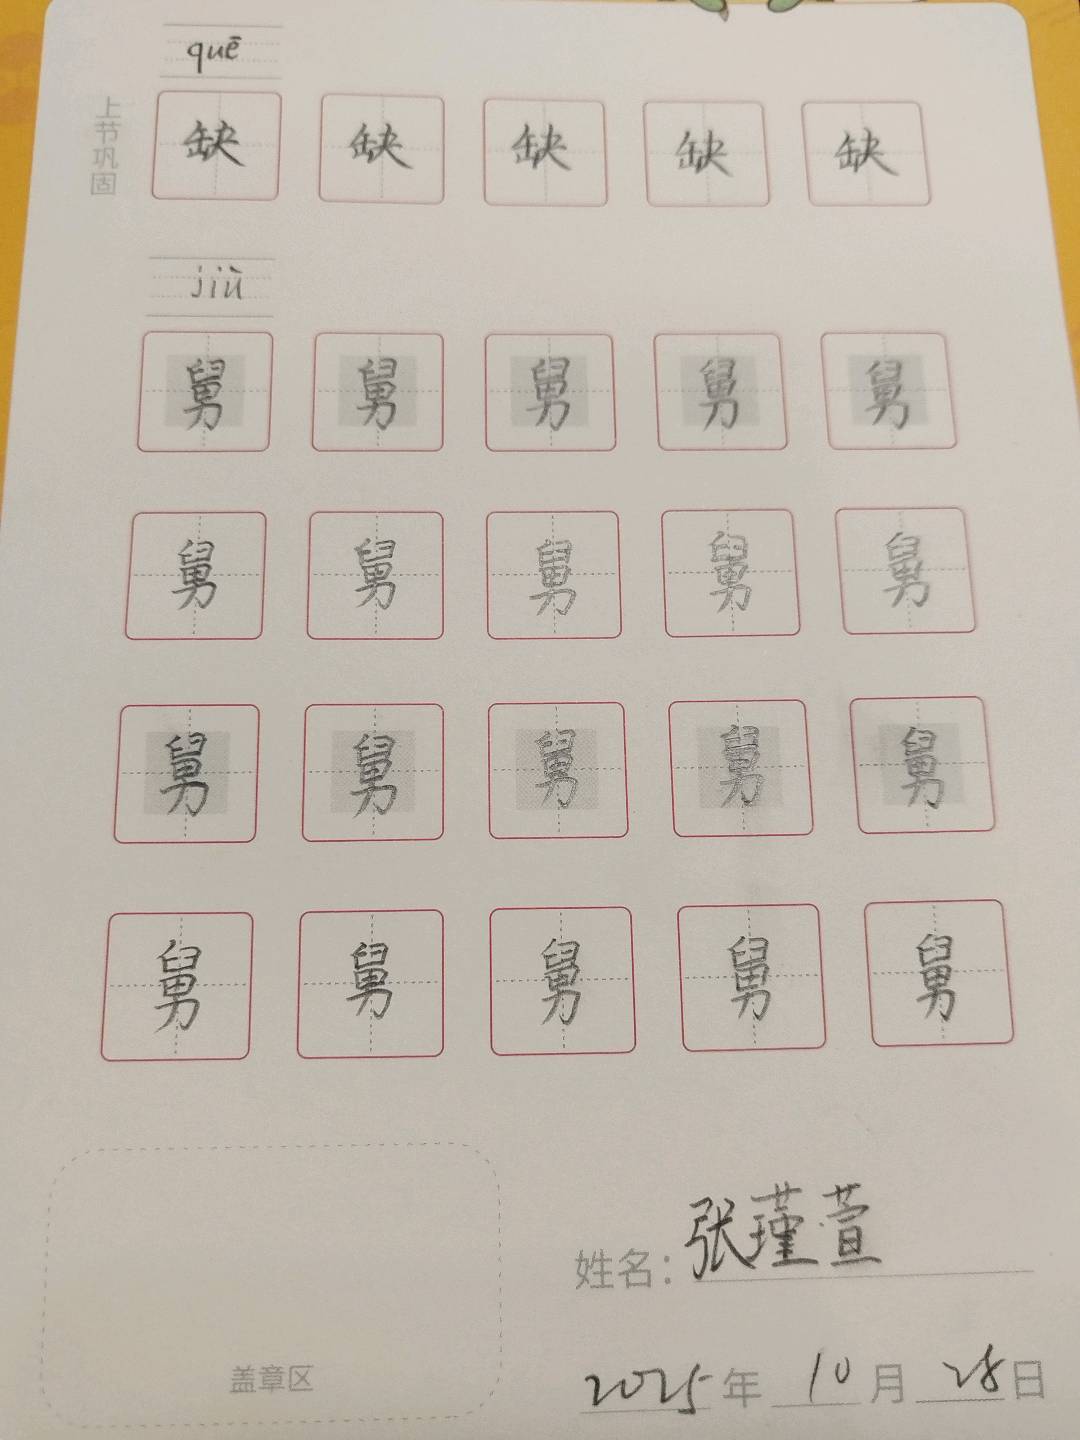 quē
上节巩固
缺 缺 缺 缺 缺
jiù
舅 舅 舅 舅 舅
舅 舅 舅 舅 舅
舅 舅 舅 舅 舅
舅 舅 舅 舅 舅
姓名：张瑾萱
盖章区
2025年10月28日